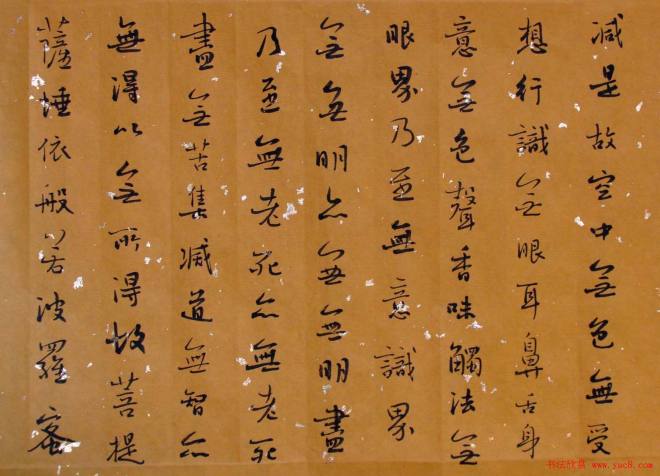 減是故空中無色無受
想行識無眼耳鼻舌身
意無色聲香味觸法無
眼界乃至無意識界
無無明亦無無明盡
乃至無老死亦無老死
盡無苦集滅道無智亦
無得以無所得故菩提
薩埵依般若波羅蜜
书法欣赏 www.yac8.com